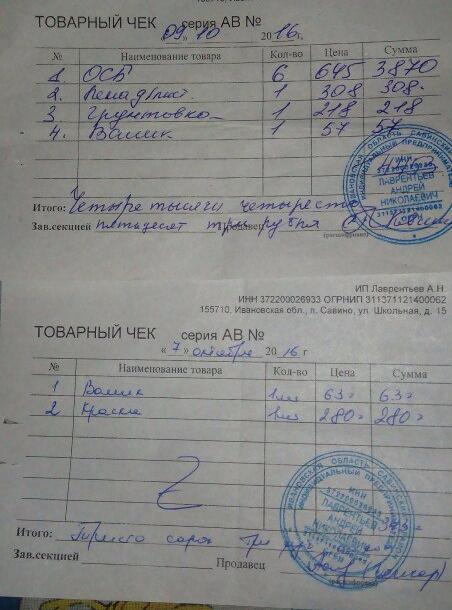 ТОВАРНЫЙ ЧЕК серия АВ №
« 09 » 10 2016 г.
№ Наименование товара Кол-во Цена Сумма
1 ОСБ 6 645 3870
2. 1 308 308.
3 Грунтовка 1 218 218
4. Валик 1 57 57
4453
Итого: Четыре тысячи четыреста
Зав.секцией пятьдесят три рубля Продавец
ИВАНОВСКАЯ ОБЛАСТЬ САВИНСКИЙ
ИНДИВИДУАЛЬНЫЙ ПРЕДПРИНИМАТЕЛЬ
ИНН
ЛАВРЕНТЬЕВ
АНДРЕЙ
НИКОЛАЕВИЧ
311371121400062
ИП Лаврентьев А.Н.
ИНН 372200026933 ОГРНИП 311371121400062
155710, Ивановская обл., п. Савино, ул. Школьная, д. 15
ТОВАРНЫЙ ЧЕК серия АВ №
« 7 » октября 2016 г
№ Наименование товара Кол-во Цена Сумма
1 Валик 1шт 63= 63=
2 Краска 1шт 280= 280=
343=
Итого: Триста сорок три руб
Зав.секцией Продавец
ИВАНОВСКАЯ ОБЛАСТЬ САВИНСКИЙ
ИНДИВИДУАЛЬНЫЙ ПРЕДПРИНИМАТЕЛЬ
ИНН
372200026933
ЛАВРЕНТЬЕВ
АНДРЕЙ
НИКОЛАЕВИЧ